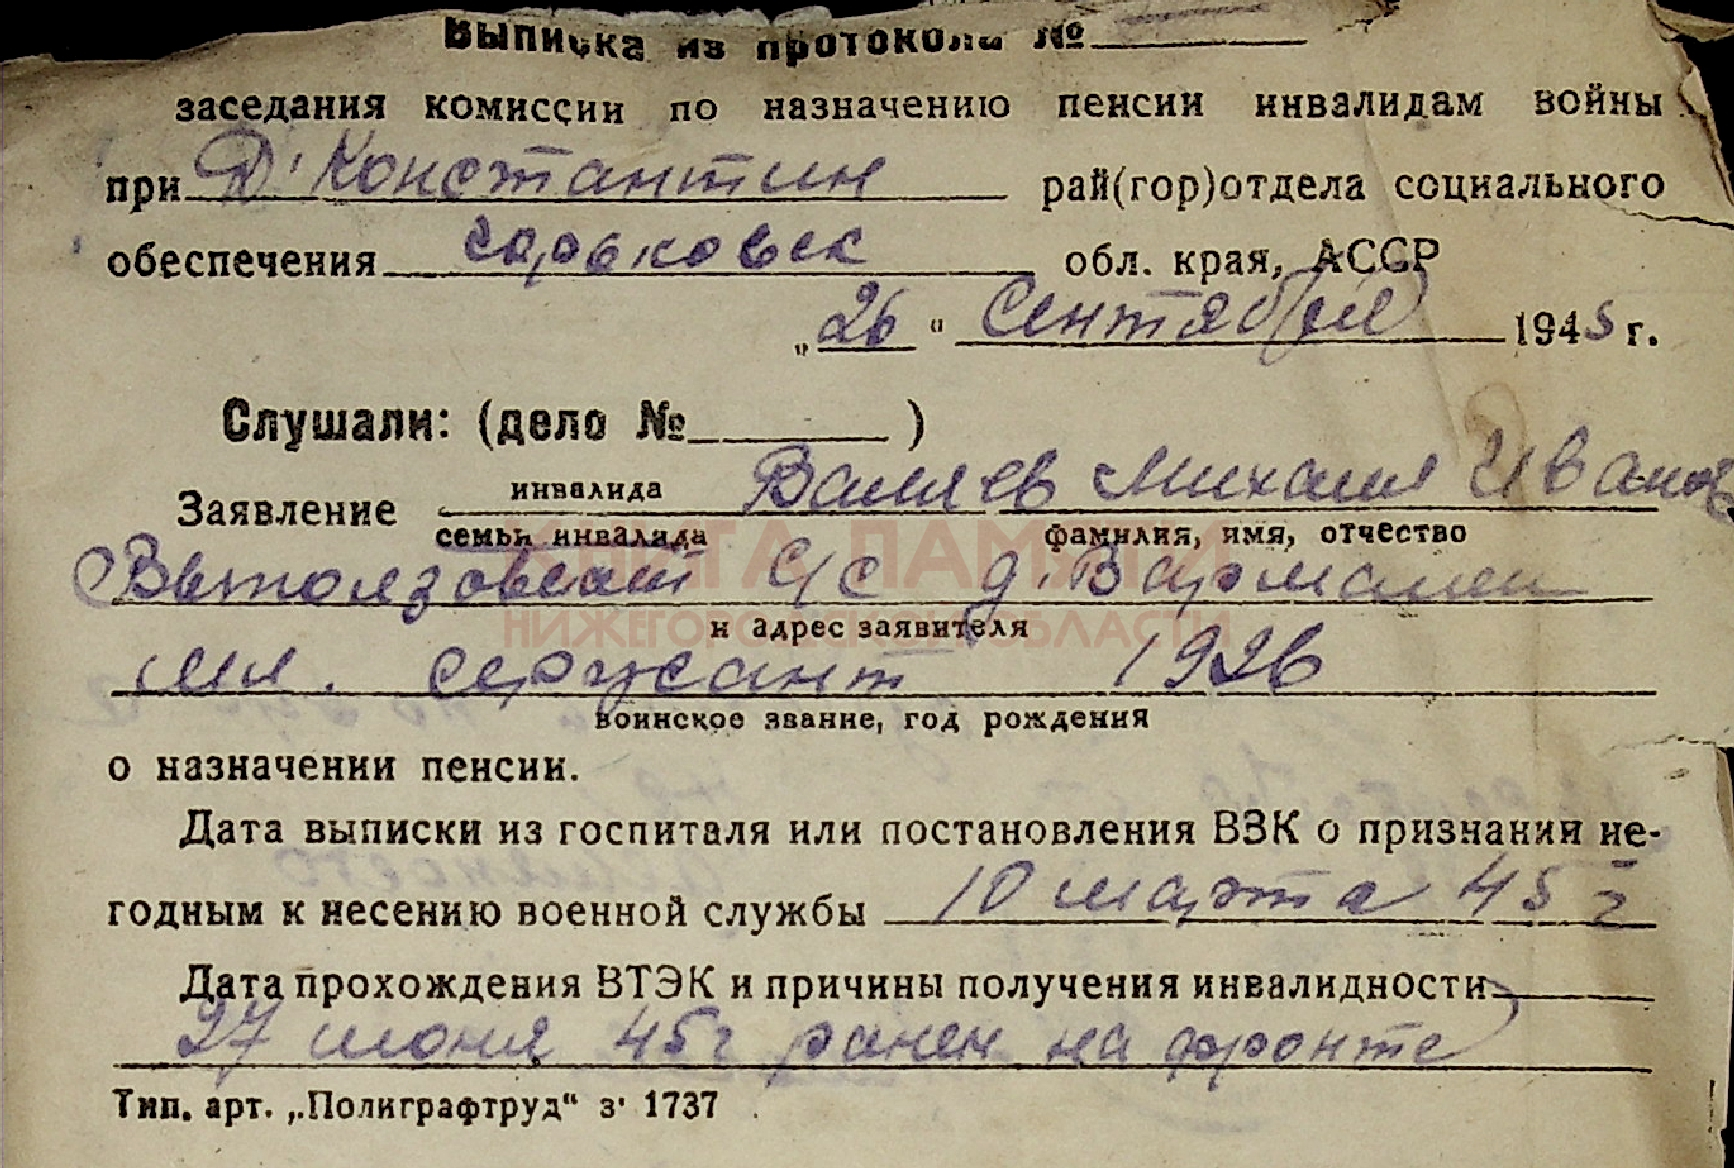 Выписка из протокола №
заседания комиссии по назначению пенсии инвалидам войны
при Д. Константин рай(гор)отдела социального
обеспечения Горьковск обл. края, АССР
„26" Сентября 1945 г.
Слушали: (дело № )
Заявление инвалида Валяев Михаил Иванов
семьи инвалида фамилия, имя, отчество
КНИГА ПАМЯТИ
с/с д. Вармалеи
НИЖЕГОРОДСКОЙ ОБЛАСТИ
и адрес заявителя
мл. сержант 1926
воинское звание, год рождения
о назначении пенсии.
Дата выписки из госпиталя или постановления ВЗК о признании не-
годным к несению военной службы 10 марта 45 г
Дата прохождения ВТЭК и причины получения инвалидности
27 июня 45 г ранен на фронте
Тип. арт. „Полиграфтруд" з. 1737